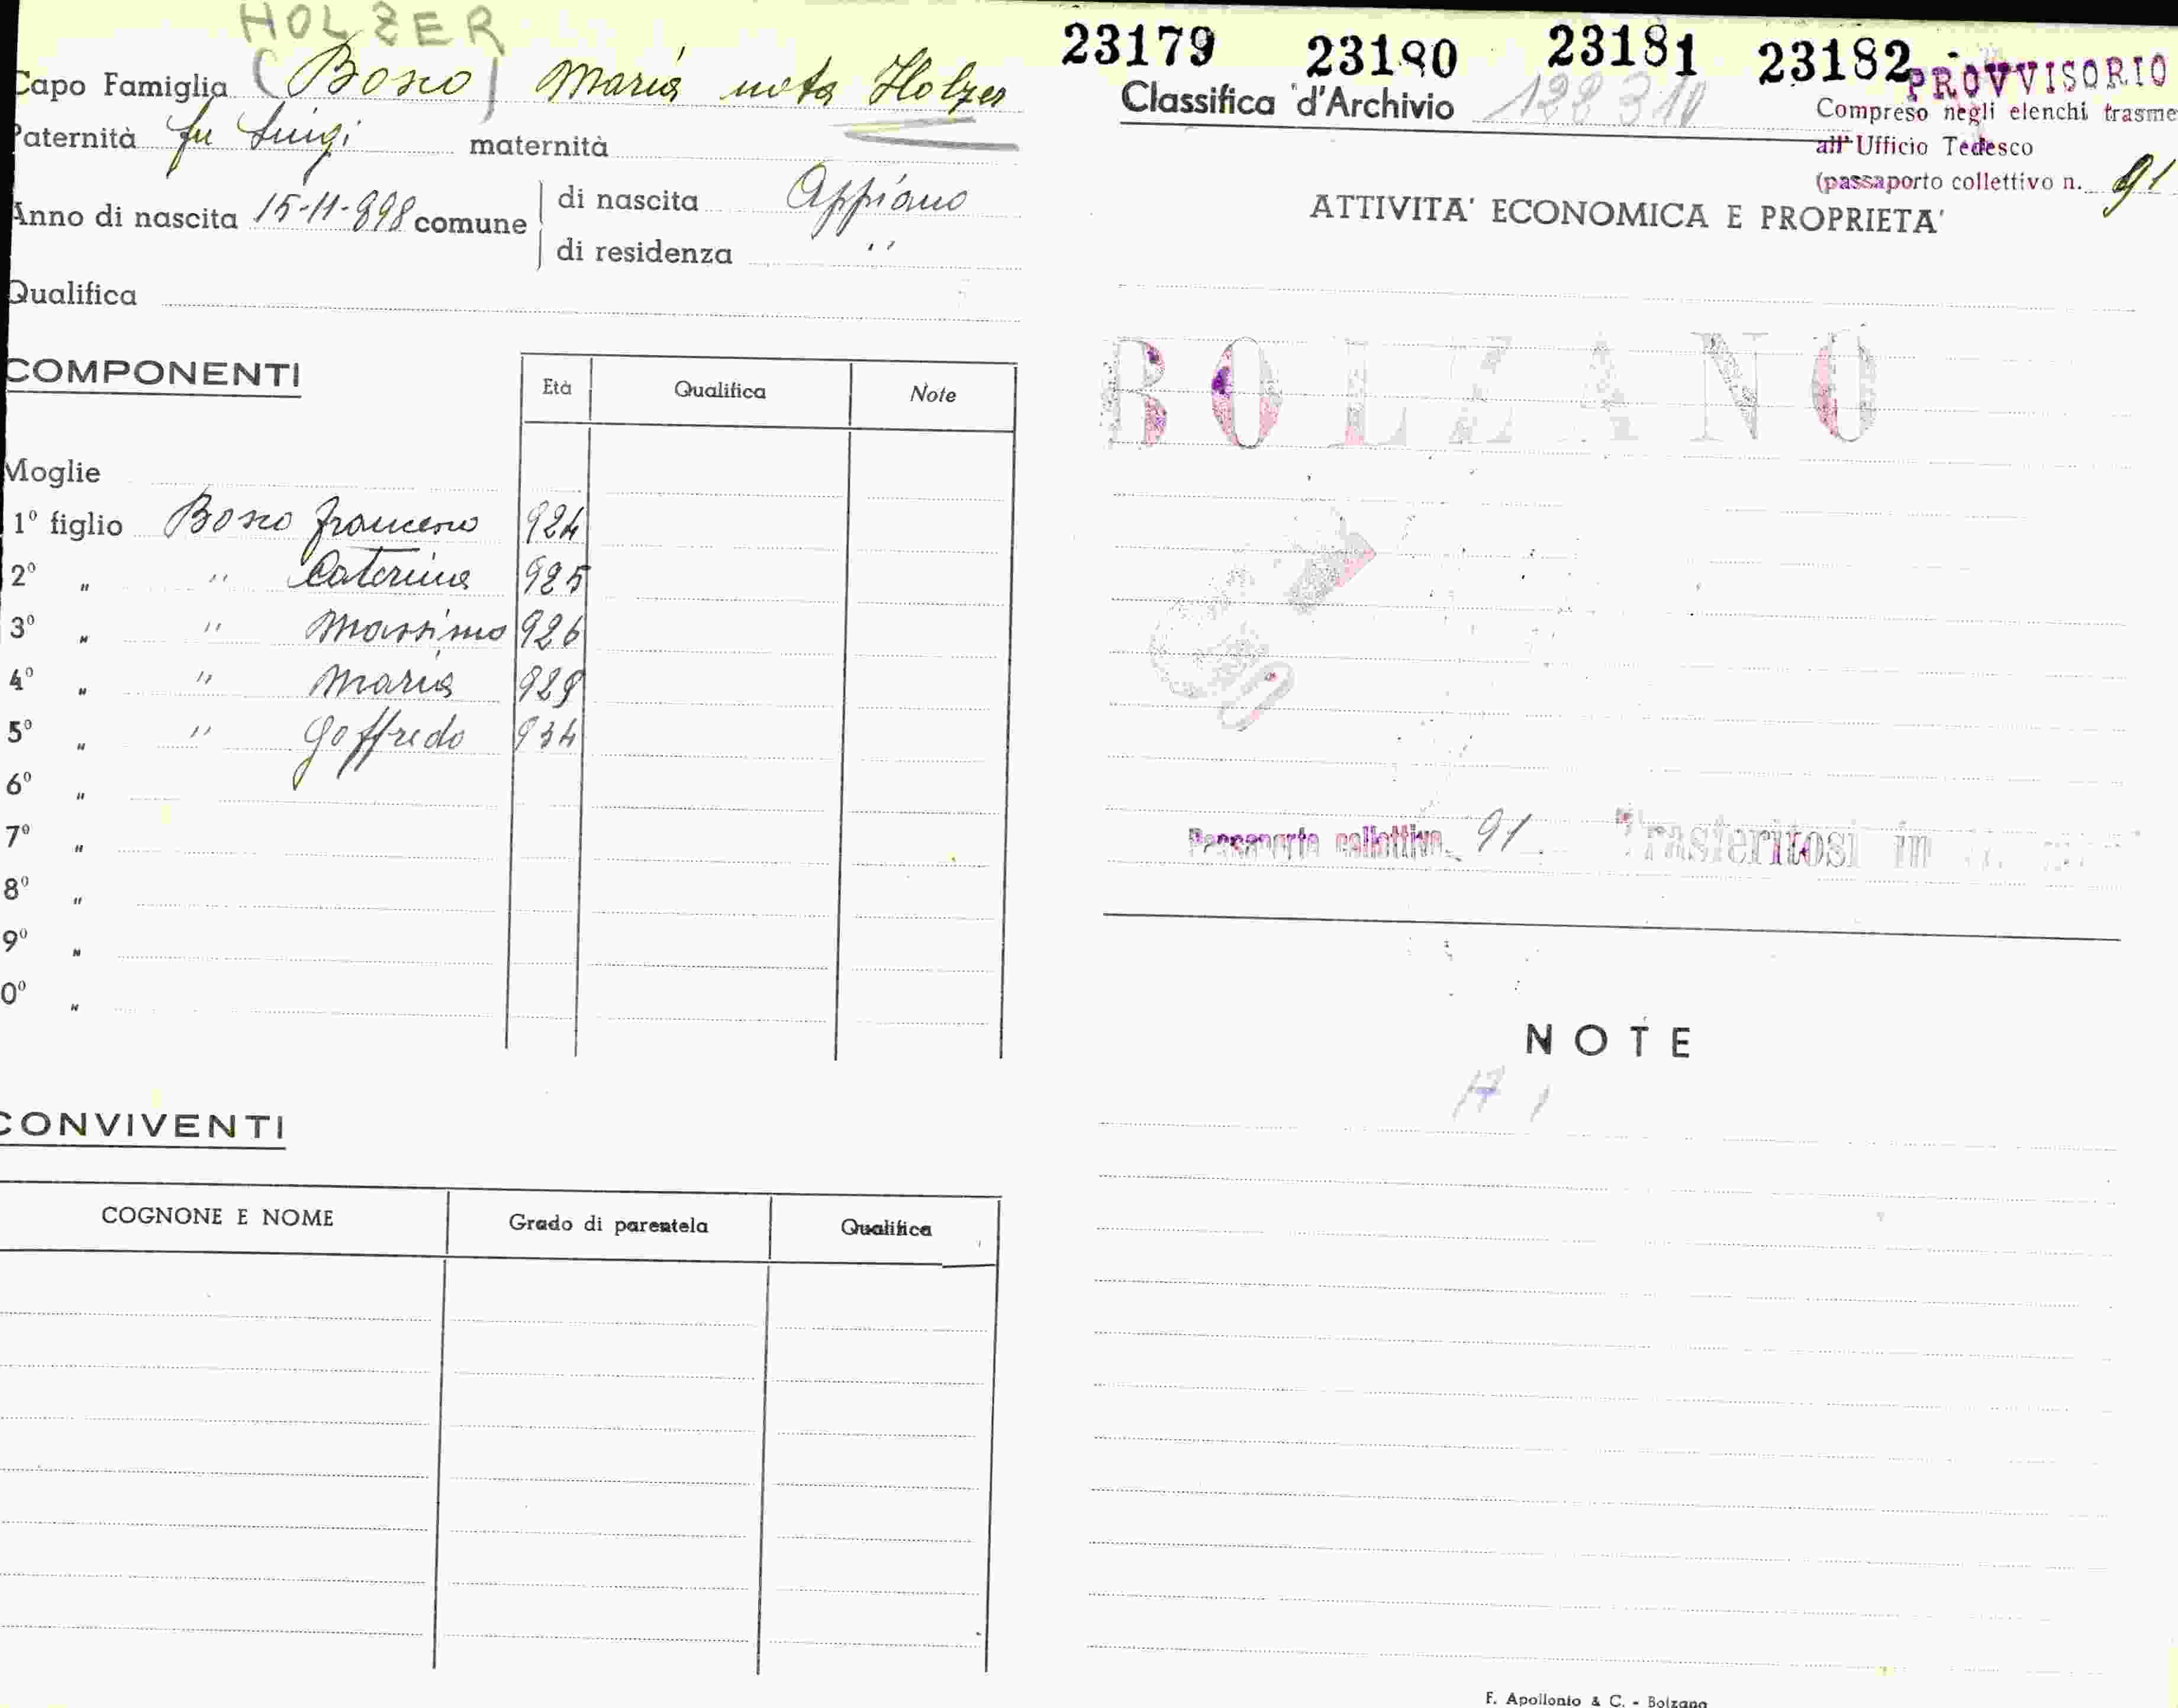 HOLZER
Capo Famiglia (Bosco) Maria nata Holzer
Paternità fu Luigi maternità
Anno di nascita 15-11-898 comune di nascita Appiano
di residenza "
Qualifica
COMPONENTI
Età Qualifica Note
Moglie
1º figlio Bosco Francesco 924
2º " " Caterina 925
3º " " Massimo 926
4º " " Maria 929
5º " " Goffredo 934
6º "
7º "
8º "
9º "
0º "
CONVIVENTI
COGNONE E NOME Grado di parentela Qualifica
23179 23180 23181 23182
PROVVISORIO
Classifica d'Archivio
Compreso negli elenchi trasme
all' Ufficio Tedesco
(passaporto collettivo n. 91
ATTIVITA' ECONOMICA E PROPRIETA'
BOLZANO
Passaporto collettivo 91 Trasferitosi in
NOTE
F. Apollonio & C. - Bolzano